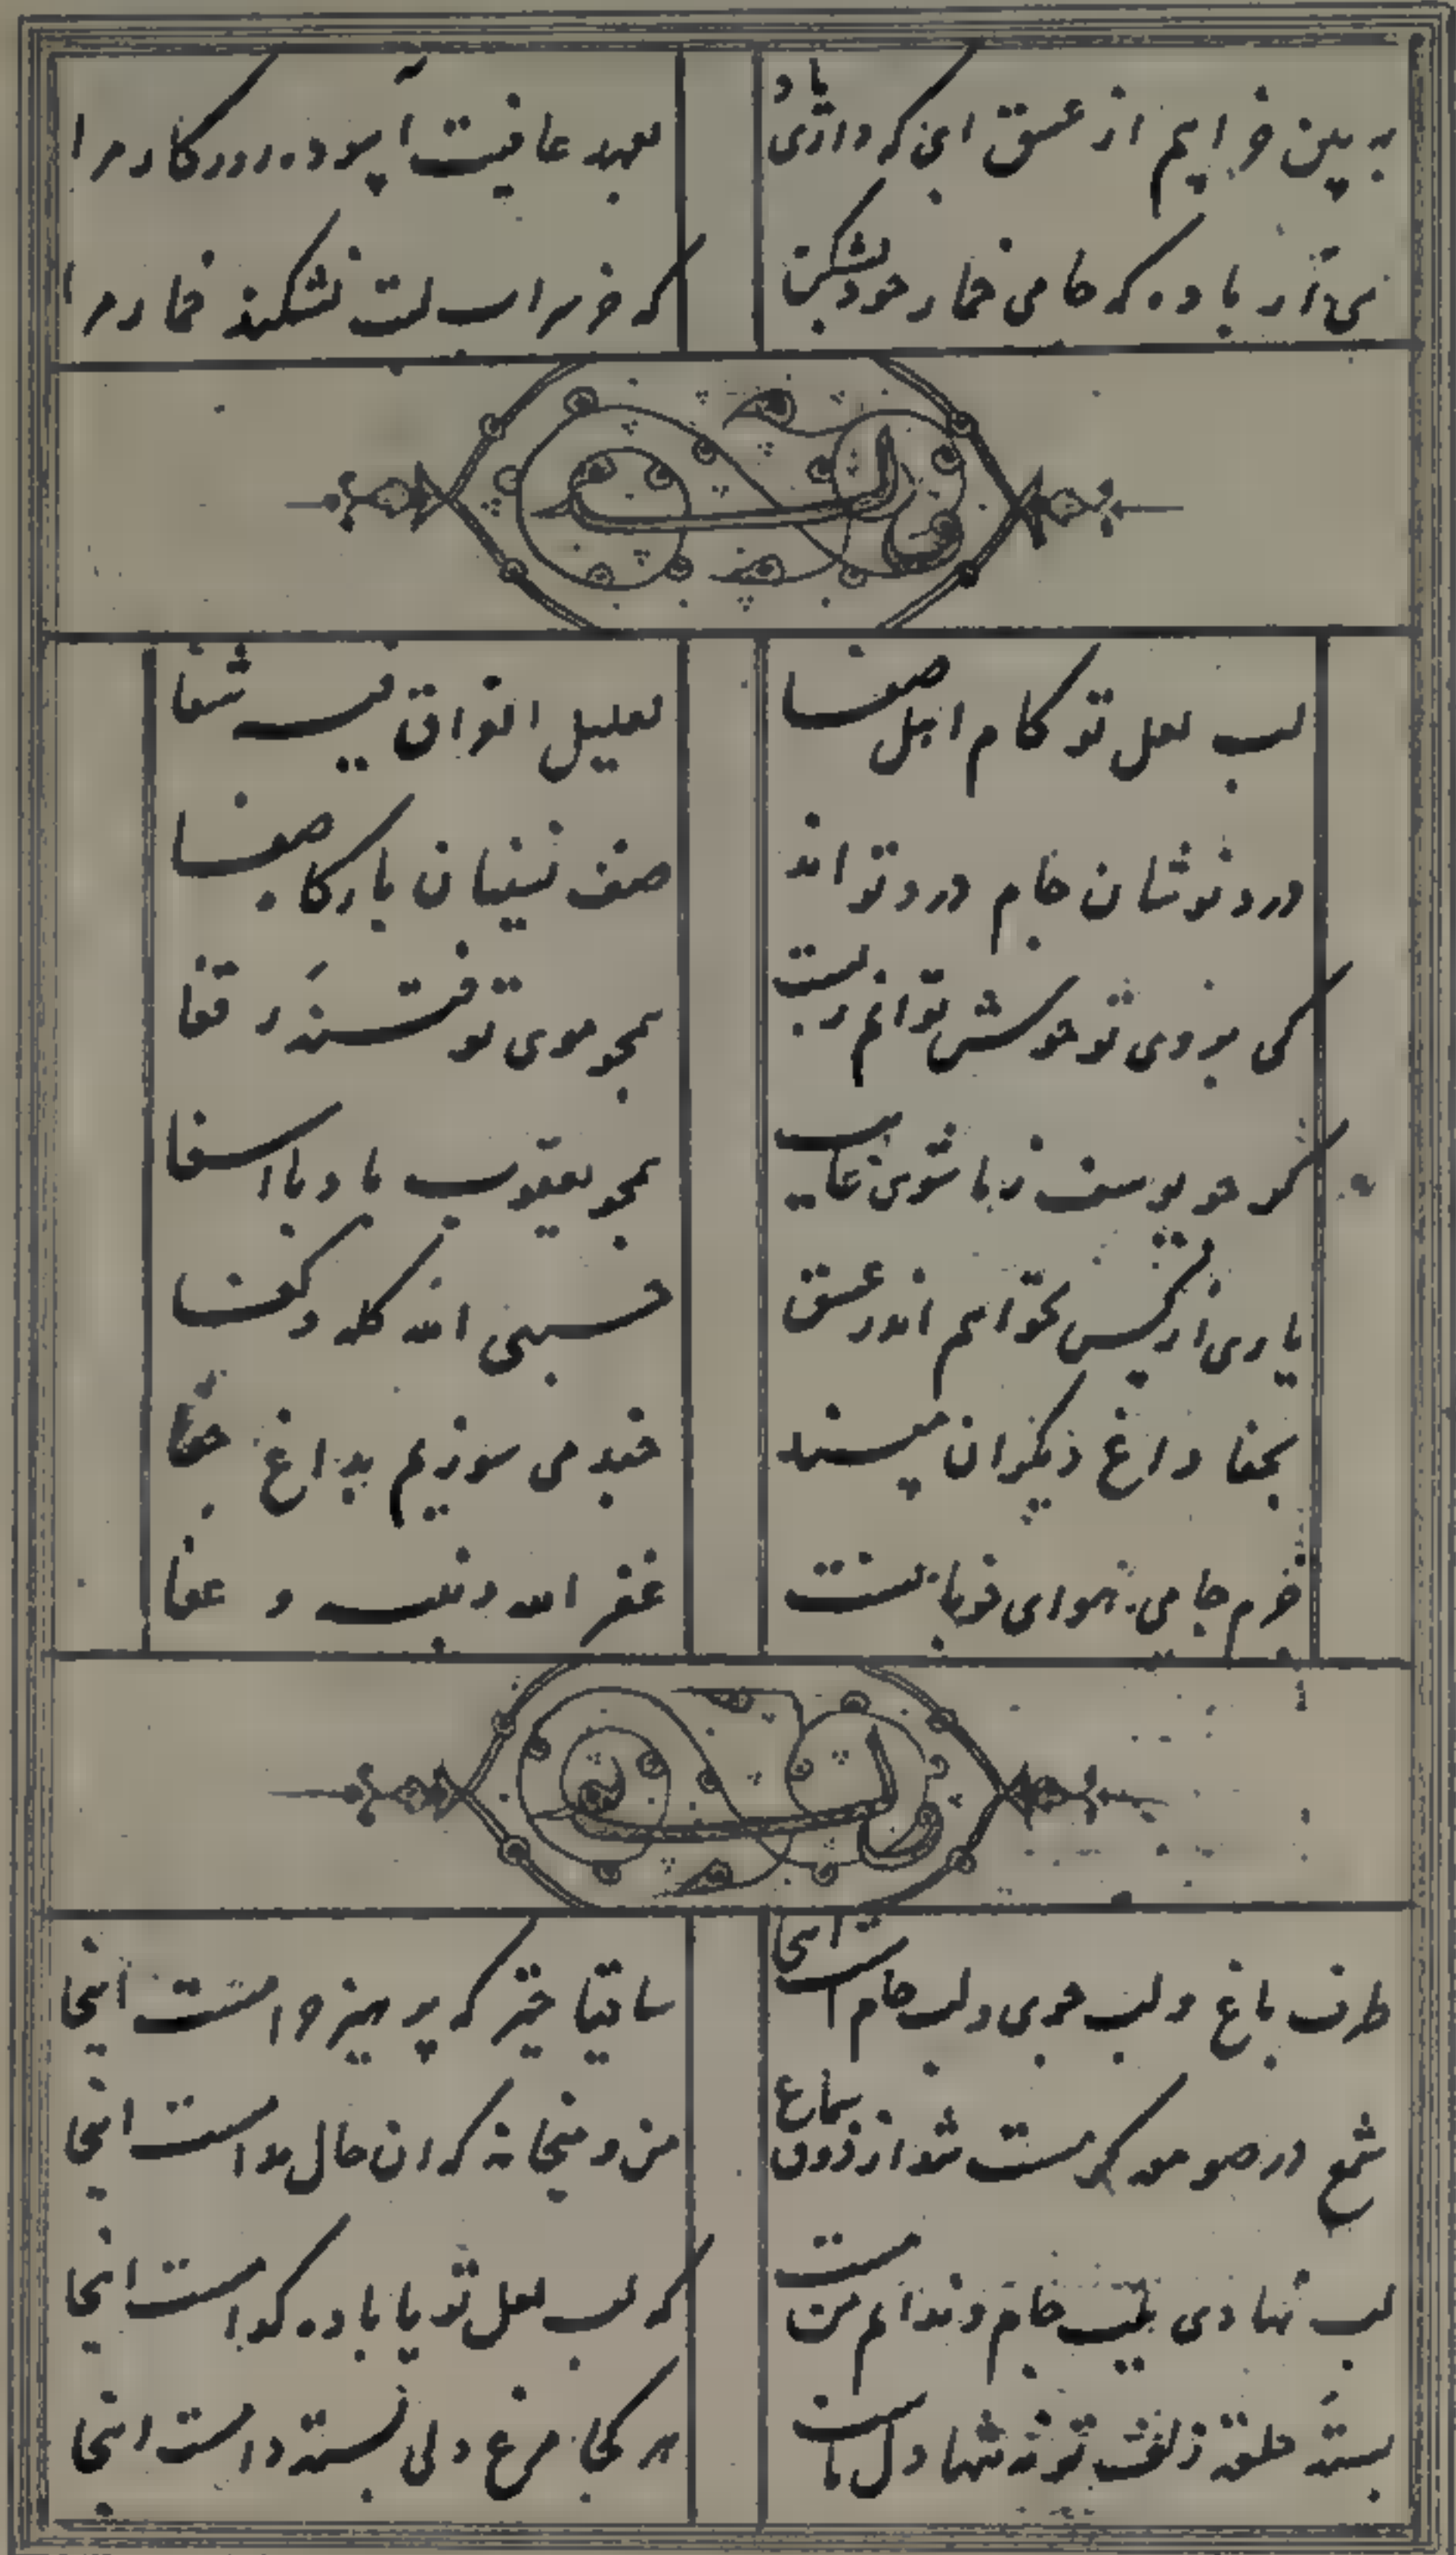 به بین خرابیم از عشق ای که داری یاد
بعهد عافیت آسوده روزگار مرا
می آر باده که جامی خمار خود بشکن
که جز شراب لبت نشکند خمار مرا
لب لعل تو کام اهل صفا
لعلیل الفراق فیه شفا
درد نوشان جام درد تواند
صف نشینان بارگاه صفا
کی بروی تو خوش توانم زیست
همچو موی تو فتنه در قفا
گر چو یوسف ز ما شوی غایب
همچو یعقوب ما و یا اسفا
یاری از کس نخواهم اندر عشق
حسبی الله وحده وکفی
بجفا داغ دیگران مپسند
چند می سوزیم بداغ جفا
جرم جامی هوای خوبانست
غفر الله ذنبه و عفا
طرف باغ و لب جوی و لب جام است اینجا
ساقیا خیز که پرهیز حرامست اینجا
شیخ در صومعه گر مست شد از ذوق سماع
من و میخانه که آن حال مدامست اینجا
لب نهادی بلب جام و ندانم من مست
که لب لعل تو یا باده کدامست اینجا
بسته حلقه زلف تو نه تنها دل ماست
هر کجا مرغ دلی بسته دامست اینجا